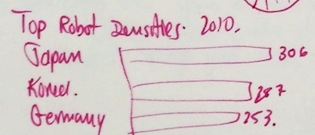 Top Robot Densities. 2010.
Japan 306
Korea. 287
Germany 253.